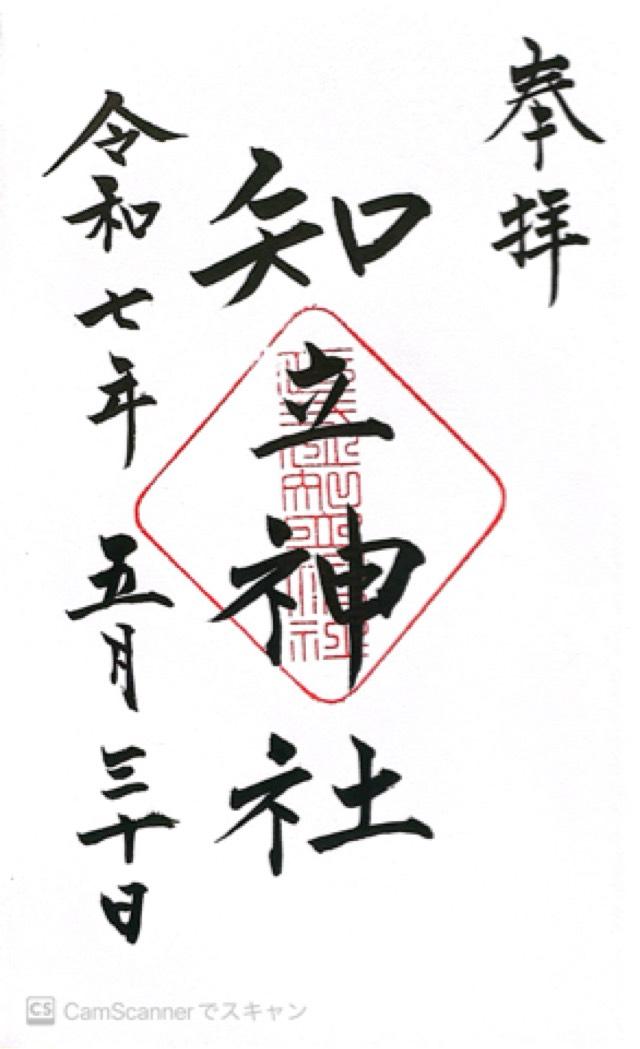 奉拝
知立神社
令和七年 五月 三十日
CS CamScannerでスキャン